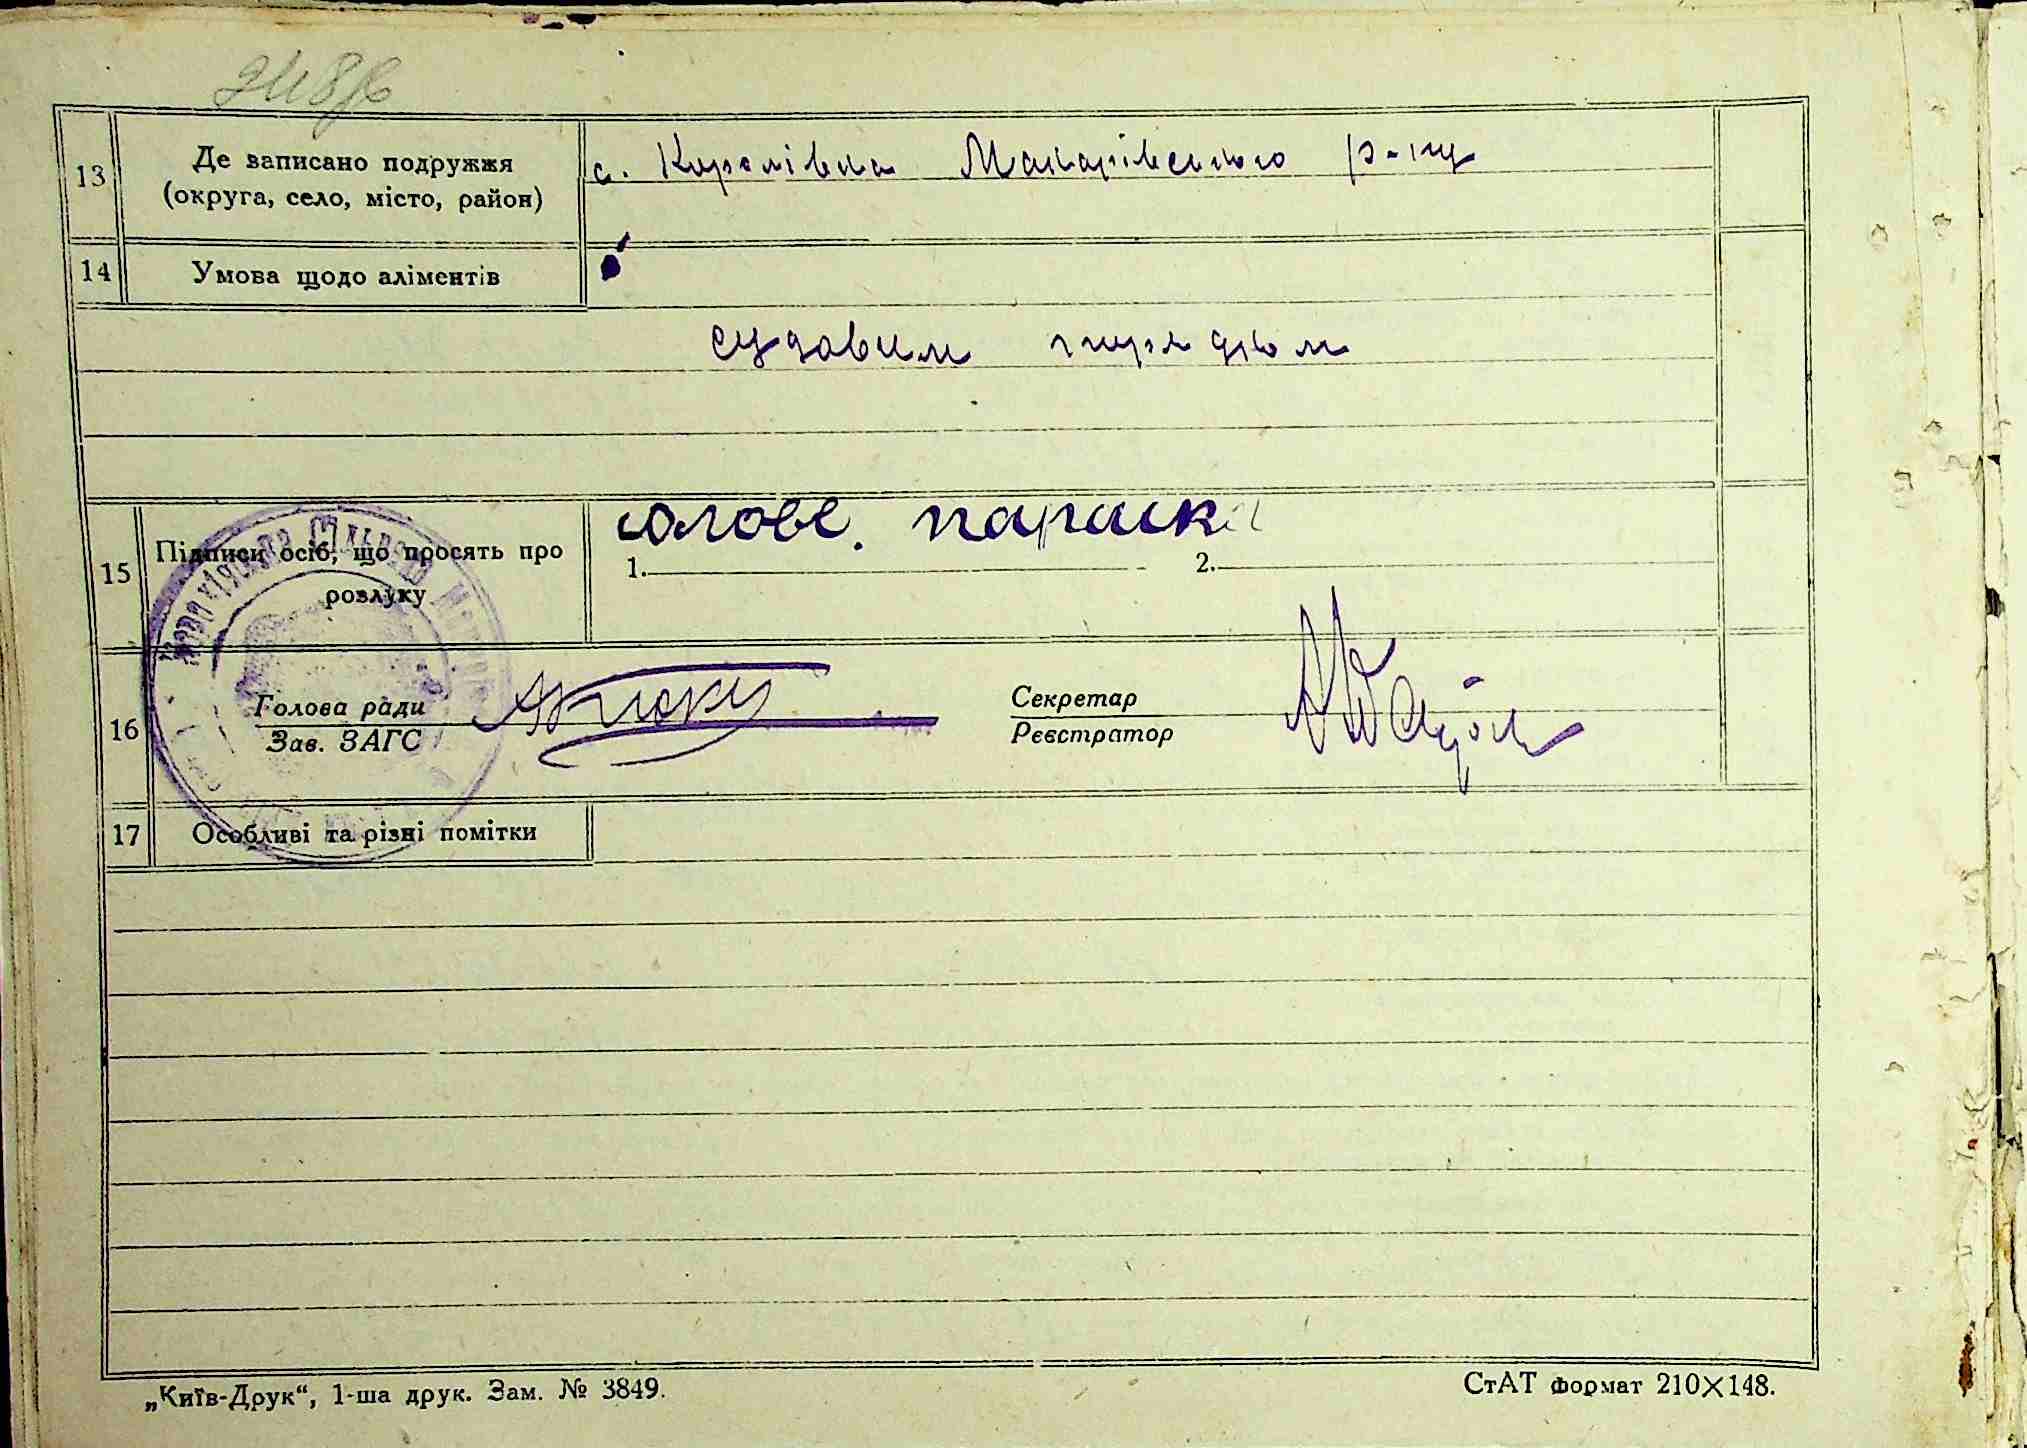 13
Де записано подружжя
(округа, село, місто, район)
с. Королівка Макарівського р-ну
14
Умова щодо аліментів
судовим порядком
15
Підписи осіб, що просять про
розлуку
параска
1.
2.
16
Голова ради
Зав. ЗАГС
Секретар
Реєстратор
17
Особливі та різні помітки
„Київ-Друк“, 1-ша друк. Зам. № 3849.
СтАТ формат 210×148.